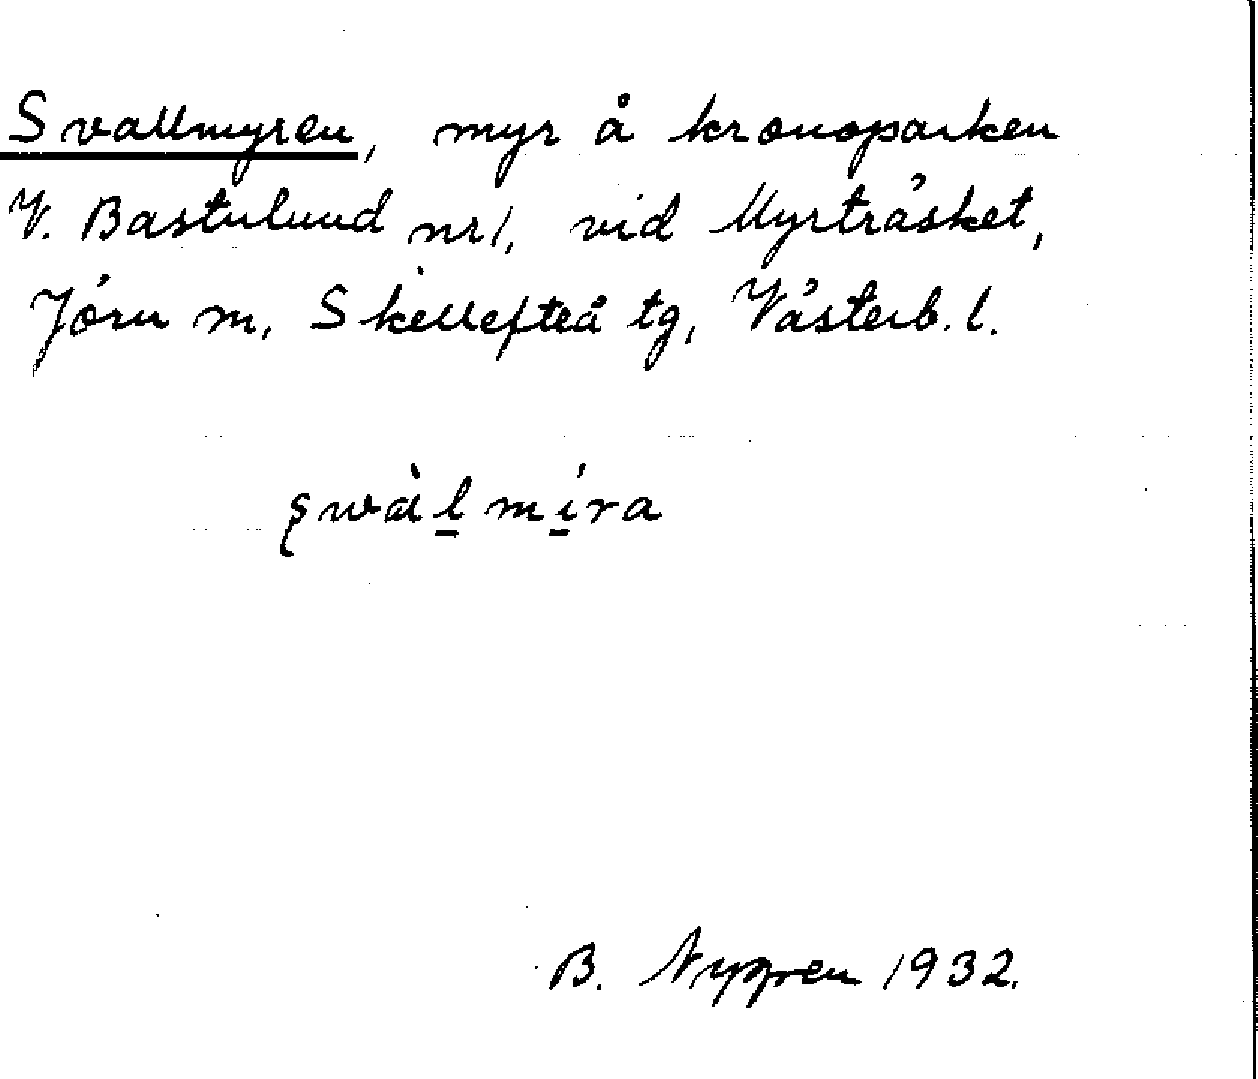 Svallmyren, myr å kronoparken
V. Bastulund nr 1, vid Myrträsket,
Jörn sn, Skellefteå tg, Västerb. l.
ʂwàl̲mi̲ra
B. Nygren 1932.